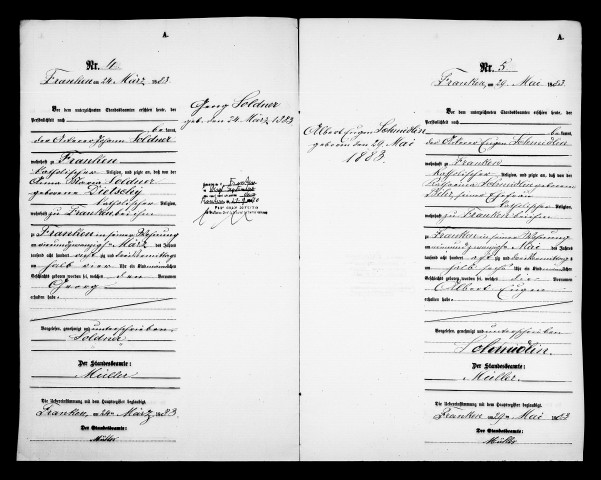 A.
Nr. 4.
Franken, am 24 März 1883.
Vor dem unterzeichneten Standesbeamten erschien heute, der
Persönlichkeit nach
be kannt,
der Ackerer Johann Soldner
wohnhaft zu Franken
katholischer Religion, und zeigte an, daß von der
Anna Maria Soldner
geborene Dietschy
katholischer Religion,
wohnhaft zu Franken bei ihm
zu Franken in seiner Wohnung
am vierundzwanzigsten März des Jahres
tausend acht hundert achtzig und drei Vormittags
um halb vier Uhr ein Kind männlichen
Geschlecht geboren worden sei, welches den Vornamen
Georg
erhalten habe.
Vorgelesen, genehmigt und unterschrieben
Soldner
Der Standesbeamte:
Müller
Die Uebereinstimmung mit dem Hauptregister beglaubigt.
Franken, am 24 März 1883.
Der Standesbeamte:
Müller
Georg Soldner
geb. den 24 März 1883
Albert Eugen Schmidlin
geboren den 29 Mai
1883.
A.
Nr. 5
Franken, am 29 Mai 1883.
Vor dem unterzeichneten Standesbeamten erschien heute, der
Persönlichkeit nach
be kannt,
der Ackerer Eugen Schmidlin
wohnhaft zu Franken
katholischer Religion, und zeigte an, daß von der
Katharina Schmidlin geborenen
seiner Ehefrau
katholischer Religion,
wohnhaft zu Franken bei ihm
zu Franken in seiner Wohnung
am neunundzwanzigsten Mai des Jahres
tausend acht hundert achtzig und drei Vormittags
um halb sechs Uhr ein Kind männlichen
Geschlecht geboren worden sei, welches die Vornamen
Albert Eugen
erhalten habe.
Vorgelesen, genehmigt und unterschrieben
Schmidlin.
Der Standesbeamte:
Müller.
Die Uebereinstimmung mit dem Hauptregister beglaubigt.
Franken, am 29 Mai 1883
Der Standesbeamte:
Müller